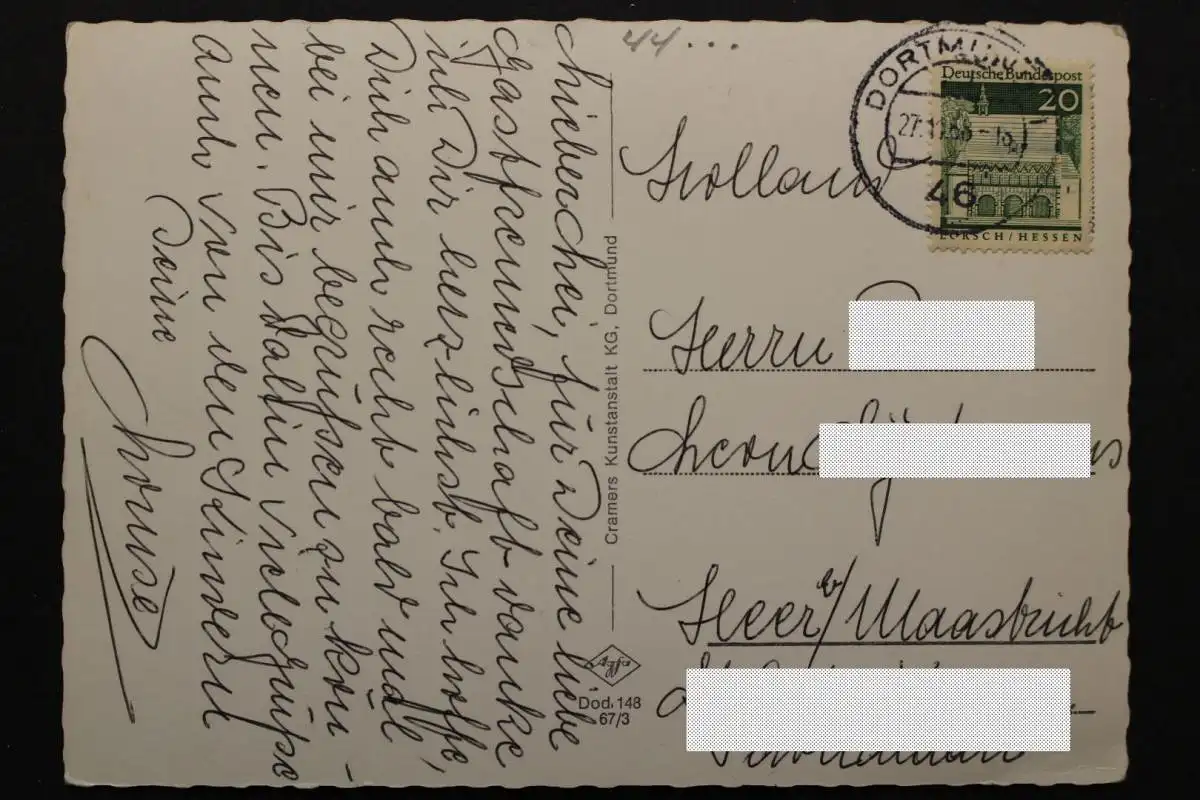 Lieber Chei, für Deine liebe
Gastfreundschaft danke
ich Dir herzlichst. Ich hoffe,
Dich auch recht bald mal
bei mir begrüßen zu kön-
nen. Bis dahin viele Grüße
auch von den Kindern
Deine
44...
Cramers Kunstanstalt KG, Dortmund
Agfa
Dod. 148
67/3
DORTMUND
27.11.68-16
46
Deutsche Bundespost
20
LORSCH/HESSEN
Holland
Herrn
Heer b/ Maastricht